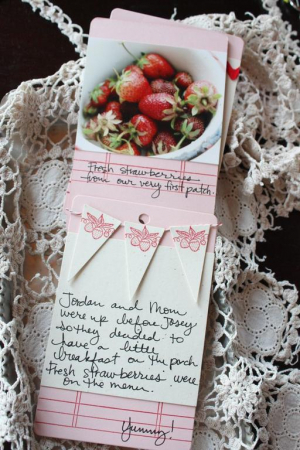 Fresh strawberries
from our very first patch.
Jordan and Mom
were up before Josey
so they decided to
have a little
breakfast on the porch
Fresh strawberries were
on the menu.
Yummy!